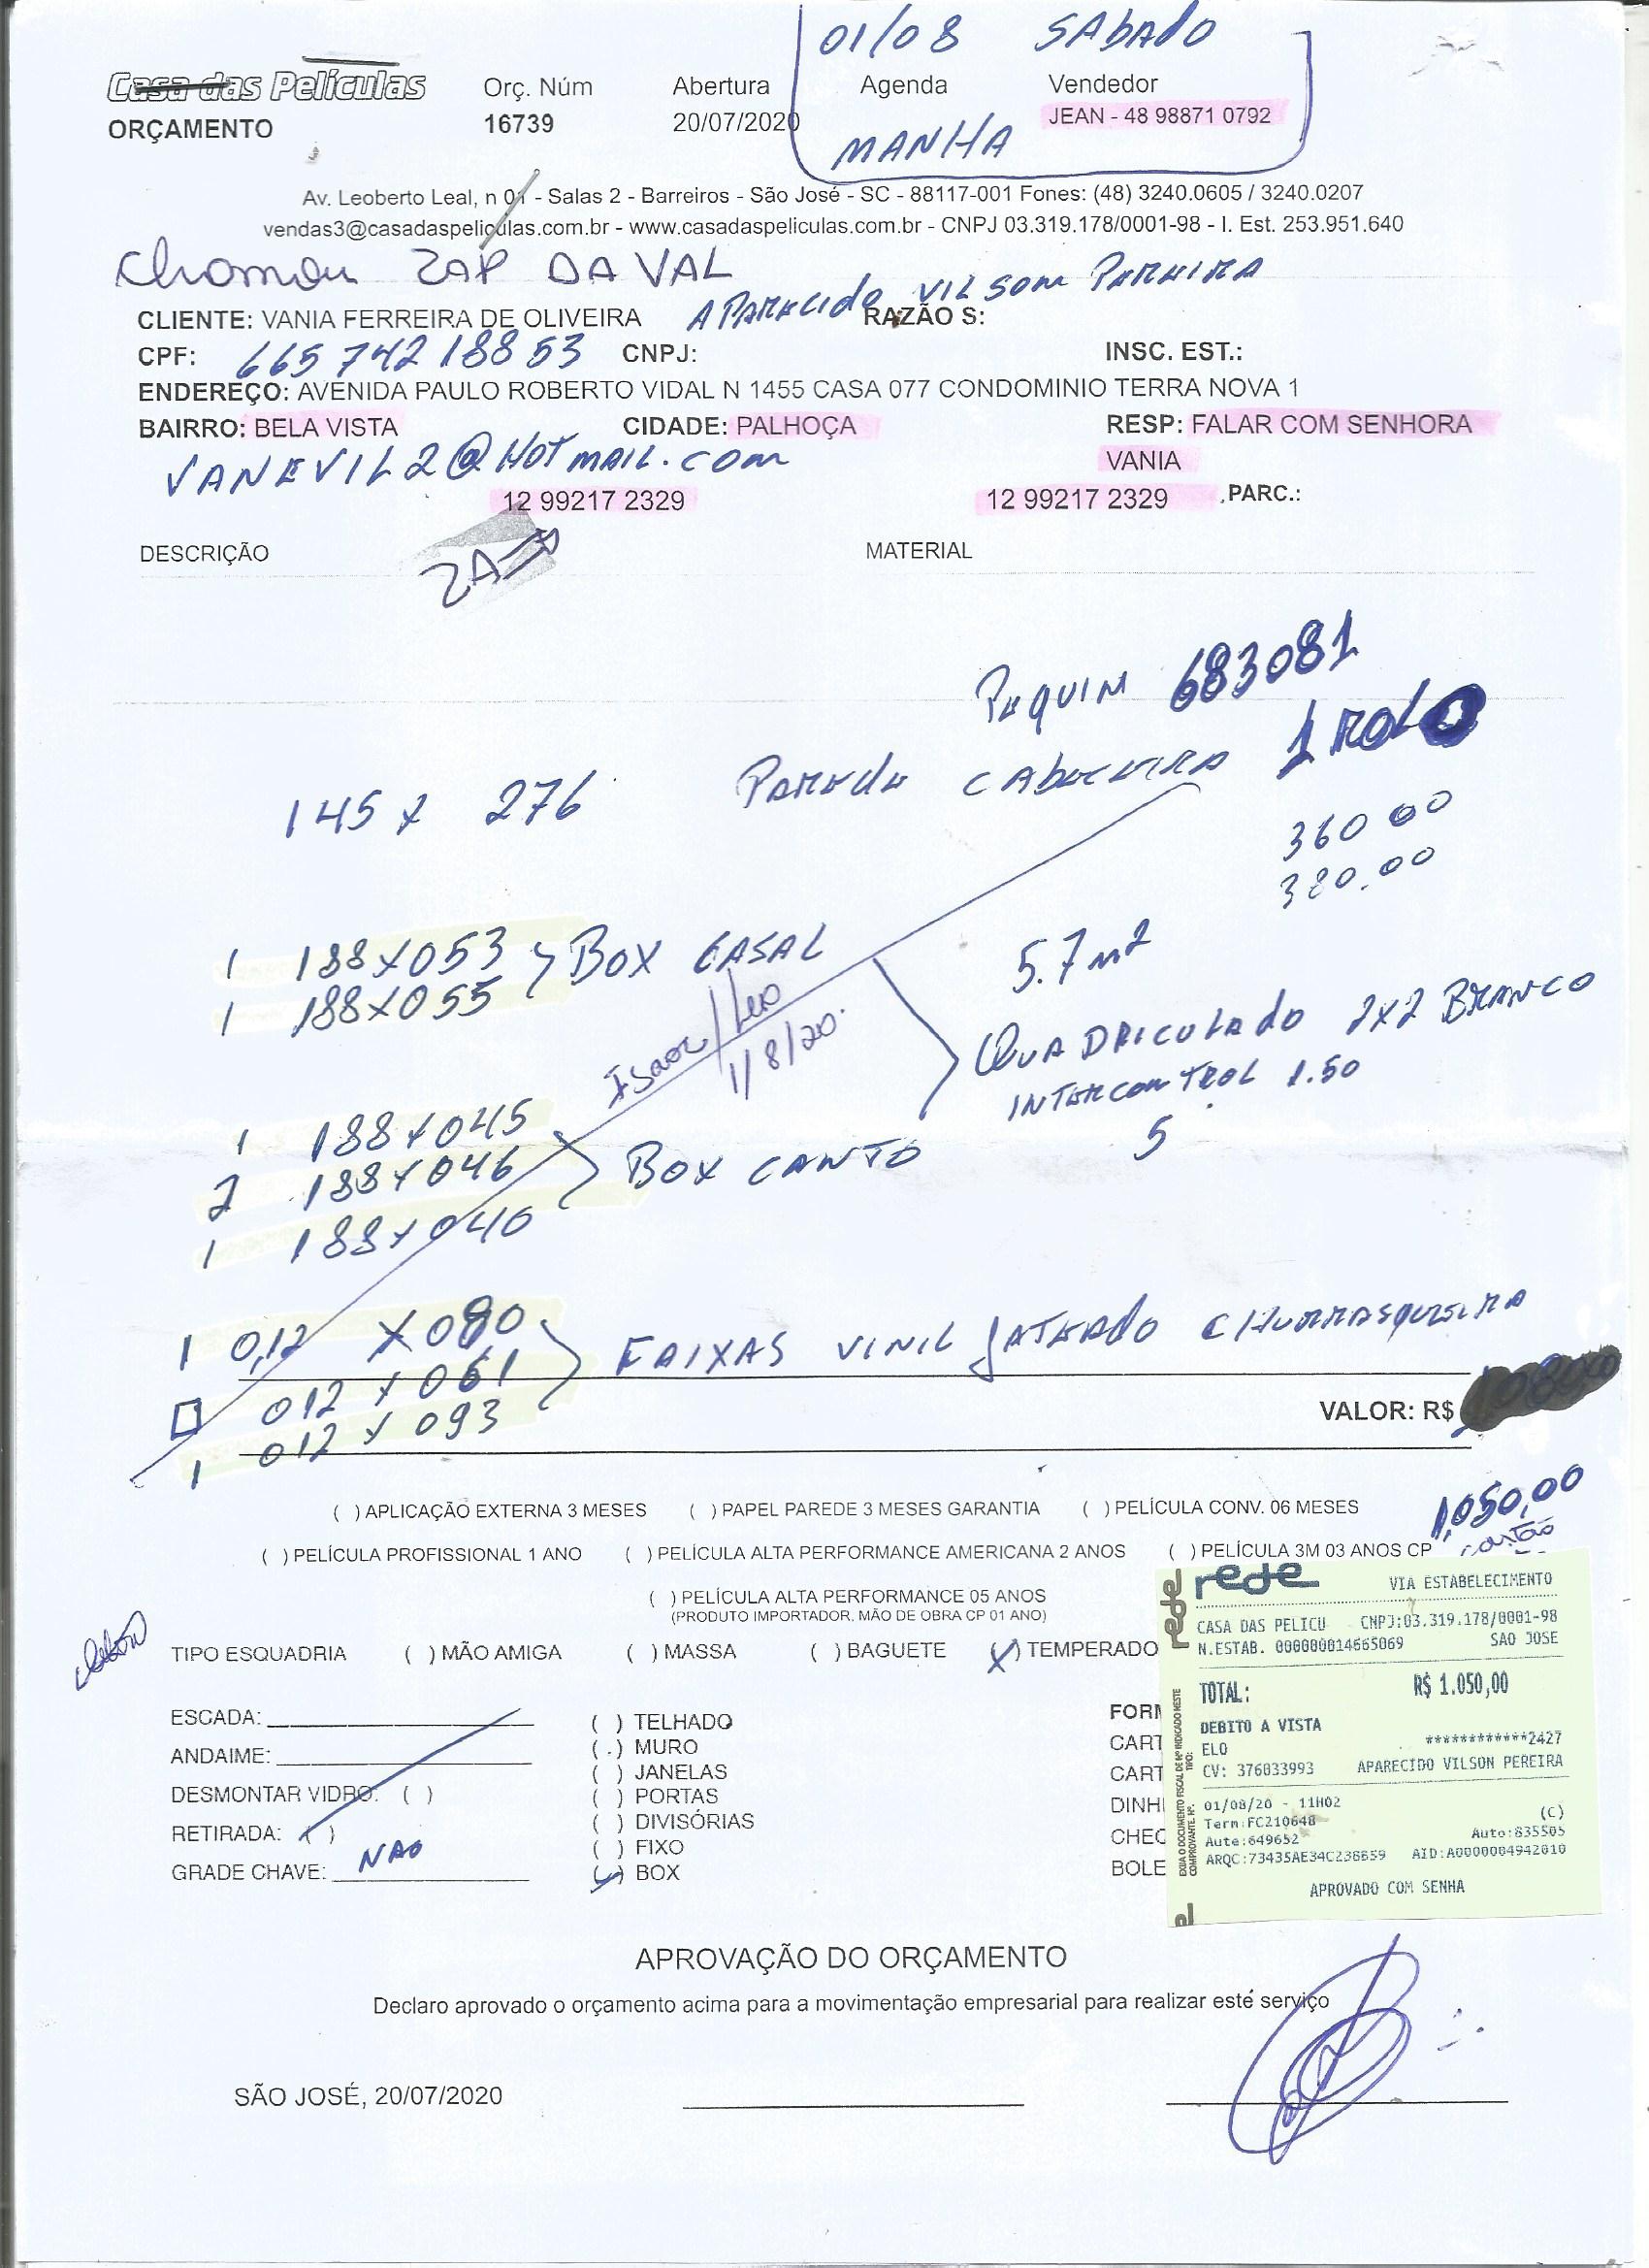 01/08 SABADO
Casa das Películas Orç. Núm Abertura Agenda Vendedor
ORÇAMENTO 16739 20/07/2020 JEAN - 48 98871 0792
MANHA
Av. Leoberto Leal, n 01 - Salas 2 - Barreiros - São José - SC - 88117-001 Fones: (48) 3240.0605 / 3240.0207
vendas3@casadaspeliculas.com.br - www.casadaspeliculas.com.br - CNPJ 03.319.178/0001-98 - I. Est. 253.951.640
Chamou ZAP DA VAL
APARECIDO VILSOM PEREIRA
CLIENTE: VANIA FERREIRA DE OLIVEIRA RAZÃO S:
CPF: 665 742 188 53 CNPJ: INSC. EST.:
ENDEREÇO: AVENIDA PAULO ROBERTO VIDAL N 1455 CASA 077 CONDOMINIO TERRA NOVA 1
BAIRRO: BELA VISTA CIDADE: PALHOÇA RESP: FALAR COM SENHORA
VANEVIL2@HOTMAIL.COM VANIA
12 99217 2329 12 99217 2329 PARC.:
DESCRIÇÃO MATERIAL
PEQUIM 683081
145 x 276 PAREDE CABECEIRA 1 ROLO
360 00
380.00
1 188x053 BOX CASAL 5.7m2
1 188x055
Isaac/Leo
1/8/20.
QUADRICULADO 2x2 BRANCO
INTERCONTROL 1.50
5
1 188x045
2 188x046 BOX CANTO
1 188x040
1 0,12 x080 FAIXAS VINIL JATEADO CHURRASQUEIRA
012 x 061
VALOR: R$
1 012 x 093
1,050,00
cartão
( ) APLICAÇÃO EXTERNA 3 MESES ( ) PAPEL PAREDE 3 MESES GARANTIA ( ) PELÍCULA CONV. 06 MESES
( ) PELÍCULA PROFISSIONAL 1 ANO ( ) PELÍCULA ALTA PERFORMANCE AMERICANA 2 ANOS ( ) PELÍCULA 3M 03 ANOS CP
( ) PELÍCULA ALTA PERFORMANCE 05 ANOS
(PRODUTO IMPORTADOR. MÃO DE OBRA CP 01 ANO)
TIPO ESQUADRIA ( ) MÃO AMIGA ( ) MASSA ( ) BAGUETE (X) TEMPERADO
ESCADA:
ANDAIME:
DESMONTAR VIDRO: ( )
RETIRADA: ( )
GRADE CHAVE: NAO
( ) TELHADO
( ) MURO
( ) JANELAS
( ) PORTAS
( ) DIVISÓRIAS
( ) FIXO
(X) BOX
FORM
CART
CART
DINH
CHEQ
BOLE
rede
rede VIA ESTABELECIMENTO
CASA DAS PELICU CNPJ:03.319.178/0001-98
N.ESTAB. 000000014665069 SAO JOSE
TOTAL: R$ 1.050,00
DEBITO A VISTA
ELO ************2427
CV: 376033993 APARECIDO VILSON PEREIRA
01/08/20 - 11H02
Term:FC210648 (C)
Aute:649652 Auto:835505
ARQC:73435AE34C238659 AID:A0000004942010
APROVADO COM SENHA
EXIJA O DOCUMENTO FISCAL DE Nº INDICADO NESTE
COMPROVANTE. Nº: TIPO:
APROVAÇÃO DO ORÇAMENTO
Declaro aprovado o orçamento acima para a movimentação empresarial para realizar este serviço
SÃO JOSÉ, 20/07/2020